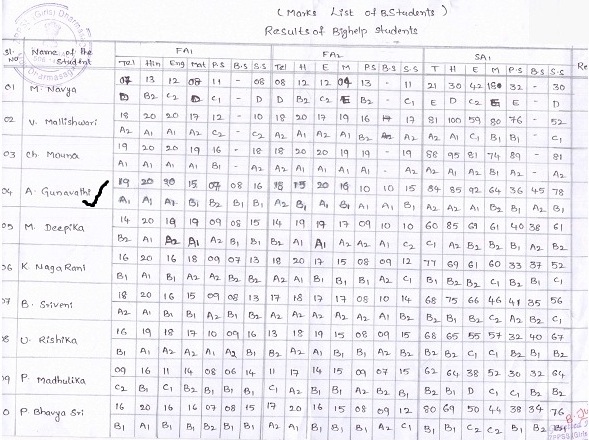 (Marks List of B.Students)
Results of Bighelp Students
Sl. NO Name of the Student FA1 FA2 SA1
Tel Hin Eng Mat P.S B.S S.S Tel H E M P.S B.S S.S T H E M P.S B.S S.S
01 M. Navya 07 13 12 08 11 - 08 08 12 12 04 13 - 11 21 30 42 18 32 - 30
D B2 C2 D C1 - D D B2 C2 E B2 - C1 E D C2 E E - D
02 V. Mallishwari 18 20 20 17 12 - 10 18 20 17 19 16 17 81 100 59 80 76 - 52
A2 A1 A1 A2 C2 - C2 A2 A1 A2 A1 B2 A2 A2 A1 C1 B1 B1 - C1
03 Ch. Mouna 19 20 20 19 16 - 18 18 20 20 19 19 - 19 88 95 81 74 89 - 81
A1 A1 A1 A1 B1 - A2 A2 A1 A1 A1 A1 - A1
04 A. Gunavathi 19 20 20 15 07 08 16 15 20 10 10 15 84 85 92 64 36 45 78
A1 A1 B1 B2 B1 B1 A1 A1 B1 A2 A2 A1 B2 B1 A2 B1
05 M. Deepika 14 20 19 19 09 08 15 14 19 19 17 09 10 10 60 85 69 61 40 38 61
B2 A1 A2 A1 A2 B1 B1 B2 A1 A1 A2 A2 A1 C2 C1 A2 B2 B1 B1 A2 B2
06 K. Naga Rani 16 20 16 18 09 07 13 18 20 17 15 08 09 12 77 69 61 60 33 37 52
B1 A1 B1 A2 A2 B2 B2 A2 A1 B1 B1 B1 A2 C1 B1 B2 B2 C1 B2 B1 C1
07 B. Sriveni 18 20 16 15 09 08 13 17 18 17 17 08 10 14 68 75 66 46 41 35 56
A2 A1 B1 B1 A2 B1 B2 B2 B1 B2 C2 A2 B1 C1
08 U. Rishika 16 19 18 17 10 09 16 13 18 19 15 08 09 15 68 65 55 57 32 40 67
B1 A1 A2 A2 A1 A2 B1 B2 A2 A1 B1 B1 A2 B1 B2 B2 C1 C1 B2 B1 B2
09 P. Madhulika 09 16 11 14 08 06 14 11 17 14 15 09 07 15 62 64 38 52 30 32 64
C2 B1 C1 B2 B1 B1 B1 D C1 C1 B2 B2
10 P. Bhavya Sri 16 20 16 16 07 08 15 17 20 16 15 08 09 12 80 69 50 44 38 34 76
B1 A1 B1 B1 B2 B1 B1 A2 A1 B1 B1 B1 A2 C1